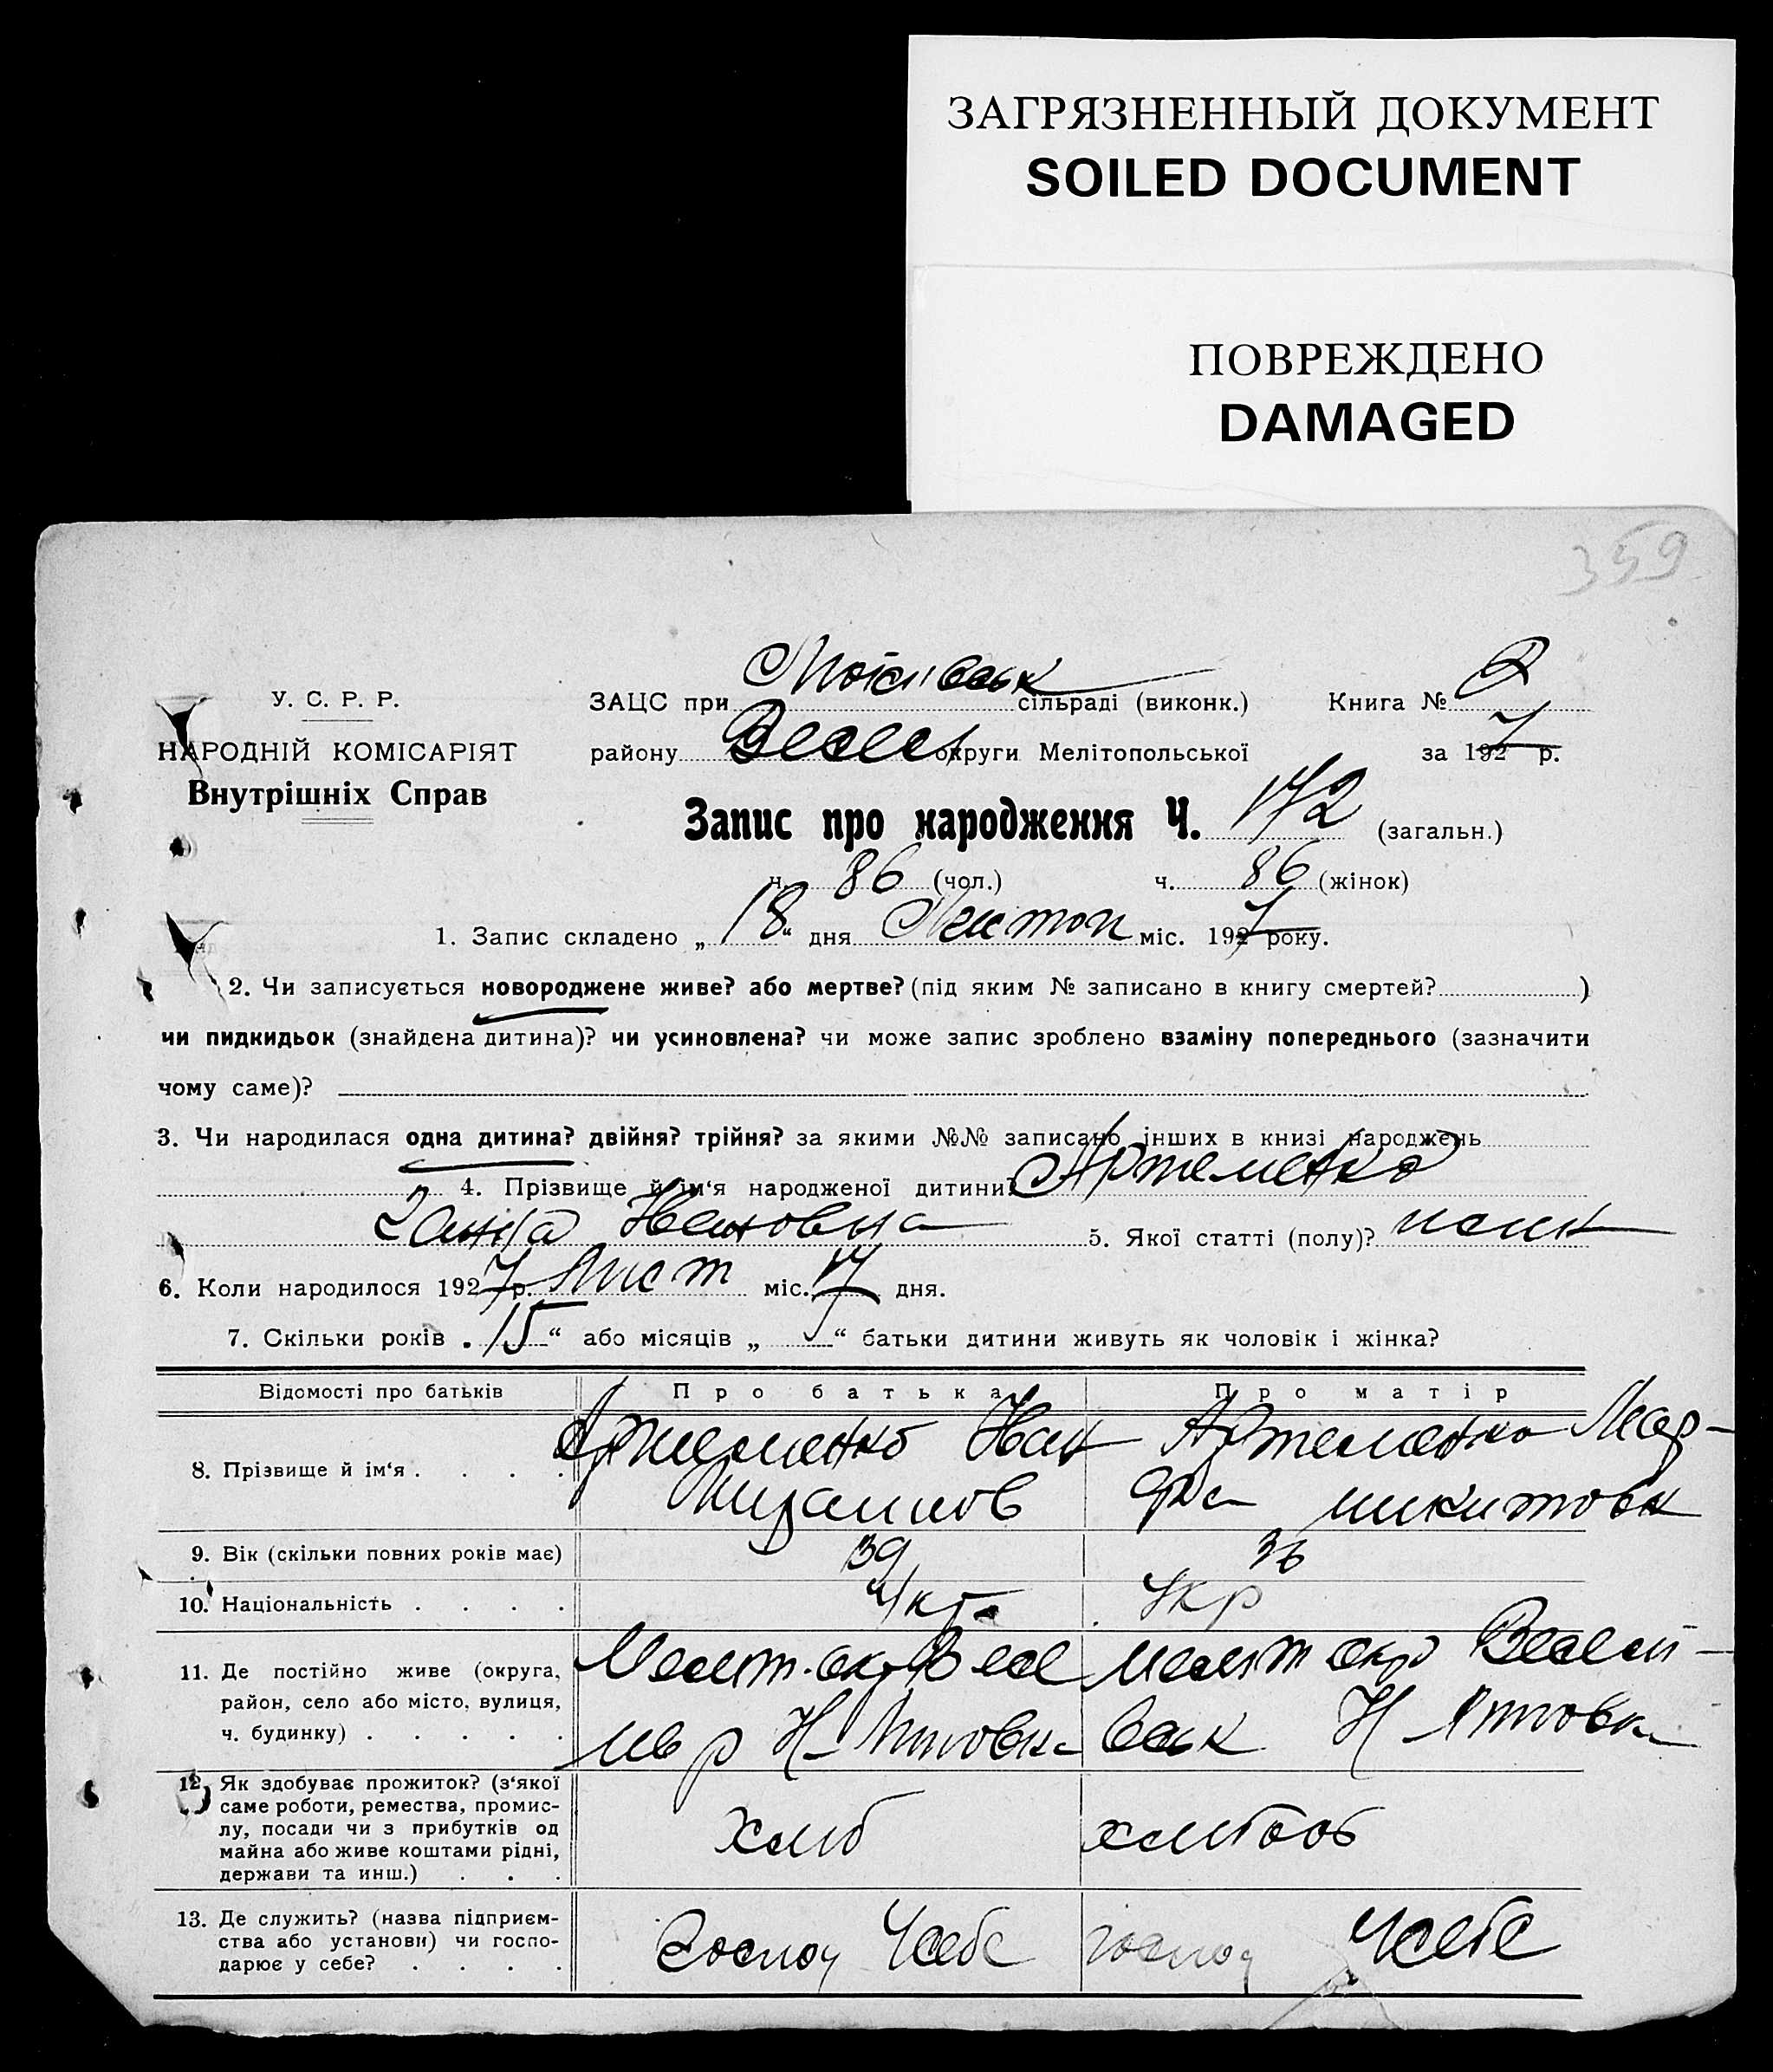 ЗАГРЯЗНЕННЫЙ ДОКУМЕНТ
SOILED DOCUMENT
ПОВРЕЖДЕНО
DAMAGED
359
У. С. Р. Р.
НАРОДНІЙ КОМІСАРІЯТ
Внутрішніх Справ
ЗАЦС при сільраді (виконк.) Книга № 2
району Весел округи Мелітопольської за 1927 р.
Запис про народження Ч. 172 (загальн.)
ч. 86 (чол.) ч. 86 (жінок)
1. Запис складено „18“ дня Листоп міс. 1927 року.
2. Чи записується новороджене живе? або мертве? (під яким № записано в книгу смертей? )
чи пидкидьок (знайдена дитина)? чи усиновлена? чи може запис зроблено взаміну попереднього (зазначити
чому саме)?
3. Чи народилася одна дитина? двійня? трійня? за якими №№ записано інших в книзі народжень
4. Прізвище й ім‘я народженої дитини? Артеменко
Ганна Ивановна 5. Якої статті (полу)?
6. Коли народилося 1927 р. Лист міс. 17 дня.
7. Скільки років „15“ або місяців „ “ батьки дитини живуть як чоловік і жінка?
Відомості про батьків Про батька Про матір
8. Прізвище й ім‘я . . . . Артеменко Иван Артеменко Мар-
фа никитовн
9. Вік (скільки повних років має) 39 36
10. Національність . . . . Укр. Укр
11. Де постійно живе (округа, район, село або місто, вулиця, ч. будинку) . . . . . Мелит. окр Весел Мелит окр Весели-
р Н Н
12. Як здобуває прожиток? (з‘якої саме роботи, ремества, промислу, посади чи з прибутків од майна або живе коштами рідні, держави та инш.) . . . хліб хлібооб
13. Де служить? (назва підприємства або установи) чи господарює у себе? . . . . Господ Усебе господ Усебе